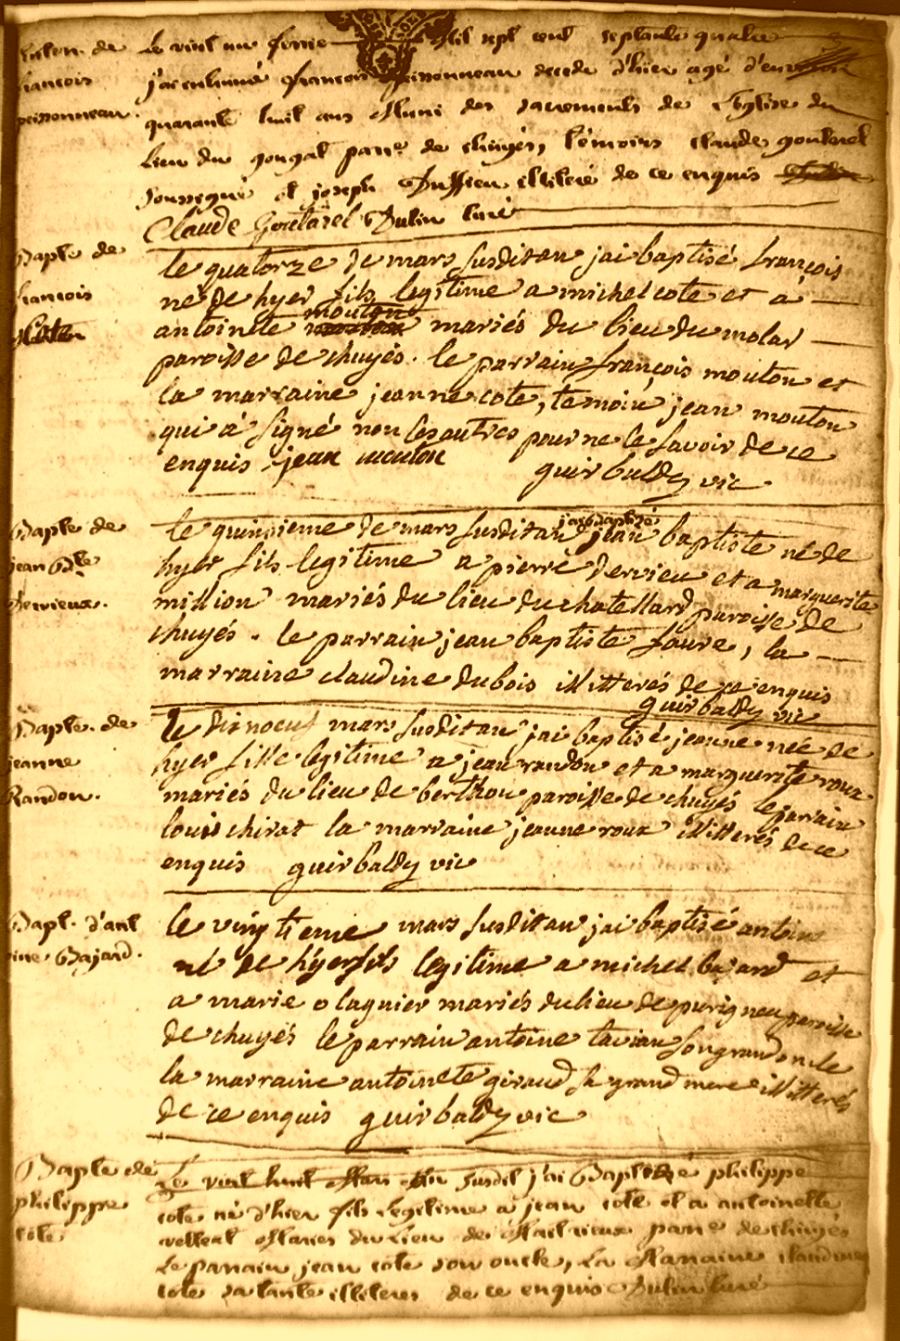 Enter. de
françois
peissonneau.
Le vint un fevrier Mil sept cent septante quatre
j'ai enhumé françois peissonneau decede d'hier agé d'environ
quarante huit ans Muni des sacrements de L'Eglise du
Lieu du gougat parr.e de chuyés, témoins claude goutarel
soussigné et joseph illiteré de ce enquis
Claude Goutarel Dulin curé
Bapte de
françois
Côte
le quatorze de mars susdit an jai baptisé françois
né de hyer fils legitime a michel cote et à
antoinete mouton mariés du lieu du molar
paroisse de chuyés. le parrain françois mouton et
la marraine jeanne cote, temoin jean mouton
qui à signé non les autres pour ne le savoir de ce
enquis jean mouton guirbaldy vic
Bapte de
jean Bte
Dervieux.
le quinsieme de mars susdit an jai baptisé jean baptiste né de
hyer fils legitime a pierre dervieu et a marguerite
million mariés du lieu du chatellard paroisse de
chuyés. le parrain jean baptiste faure, la
marraine claudine dubois illitterés de ce enquis
guirbaldy vic
Bapte. de
jeanne
Randon.
le dixnoeuf mars susdit an jai baptisé jeanne née de
hyer fille legitime a jean randon et a marguerite roux
mariés du lieu de berthou paroisse de chuyés le parrain
louis chirat la marraine jeanne roux illitterés de ce
enquis guirbaldy vic
Bapt. d'ant
oine Bajard.
le vingtieme mars susdit an jai baptisé antoine
né de hyer fils legitime a michel bajard et
a marie olagnier mariés du lieu de purigneu paroisse
de chuyés le parrain antoine tavian son grand oncle
la marraine antoinete giraud sa grand mere illitterés
de ce enquis guirbaldy vic
Bapte de
philippe
côte
Le vint huit Mars susdit j'ai Baptisé philippe
cote né d'hier fils Legitime a jean cote et a antoinette
Maries du Lieu de parr.e de chuyés
Le parrain jean cote son oncle, La Marraine claudine
cote sa tante illiteres de ce enquis Dulin curé